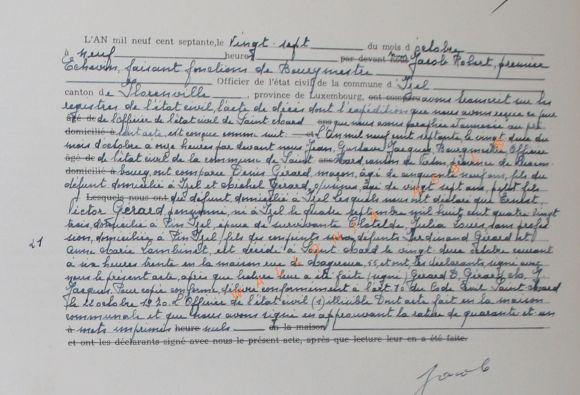 L'AN mil neuf cent septante, le vingt-sept du mois d'octobre
à neuf heures par devant nous Jacob Robert, premier
Echevin, faisant fonctions de Bourgmestre
Officier de l'état civil de la commune d'Izel
canton de Florenville, province de Luxembourg, ont comparu avons transcrit sur les
registres de l'état civil, l'acte de décès dont l'expédition que nous avons reçue ce jour
âgé de de l'officier de l'état civil de Saint Mard que nous avons
domicilié à dont acte est conçue comme suit. L'an mil neuf cent septante, le vingt deux du
mois d'octobre à onze heures par devant nous Jean, Gustave Jacques Bourgmestre Officier
âgé de de l'état civil de la commune de Saint Mard canton de Virton province de
domicilié à ont comparu Denis Gérard maçon, âgé de cinquante neuf ans, fils du
défunt domicilié à Izel et Michel Gérard, âgé de vingt sept ans, petit fils
Lesquels nous ont du défunt, domicilié à Izel lesquels nous ont déclaré que Ernest
Victor Gérard, pensionné, né à Izel le quatre septembre mil huit cent quatre vingt
trois domicilié à Pin Izel, époux de survivante Clotilde, Julia sans profes
sion, domiciliée à Pin Izel, fils des conjoints défunts Ferdinand Gérard et
Anne Marie Lambinet, est décédé à Saint Mard le vingt deux octobre courant
à six heures trente en la maison rue de 55, et ont les déclarants, signé avec
nous le présent acte, après que lecture leur a été faite (signé) Gérard D. Gérard M. G.
Jacques. Pour copie conforme, délivré conformément à l'art 70 du Code Civil Saint-Mard
le 22 octobre 1970. L'Officier de l'état civil (s) illisible. Dont acte fait en la maison
communale et que nous avons signé en approuvant la rature de quarante et un
41
mots imprimés heure nuls en la maison
et ont les déclarants signé avec nous le présent acte, après que lecture leur en a été faite.
Jacob